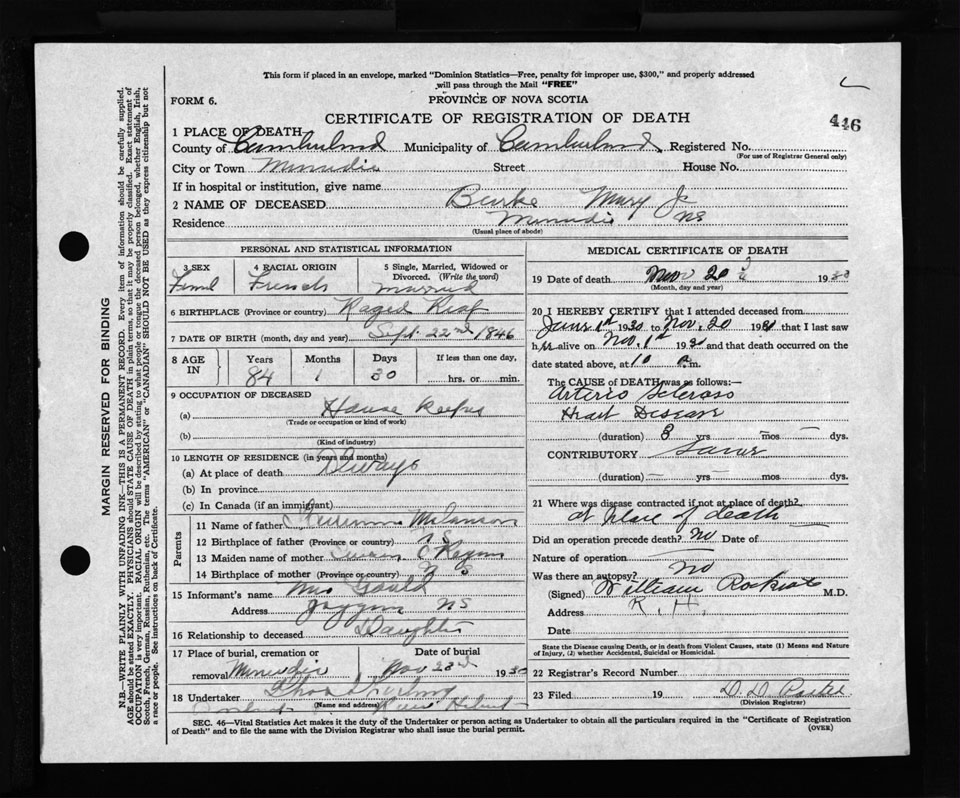 This form if placed in an envelope, marked "Dominion Statistics—Free, penalty for improper use, $300," and properly addressed
will pass through the Mail "FREE"
FORM 6.
PROVINCE OF NOVA SCOTIA
CERTIFICATE OF REGISTRATION OF DEATH
446
1 PLACE OF DEATH
County of Cumberland Municipality of Cumberland Registered No.
(For use of Registrar General only)
City or Town Minudie Street House No.
If in hospital or institution, give name
2 NAME OF DECEASED Burke Mary J
Residence Minudie NS
(Usual place of abode)
PERSONAL AND STATISTICAL INFORMATION
3 SEX 4 RACIAL ORIGIN 5 Single, Married, Widowed or Divorced. (Write the word)
Femal French married
6 BIRTHPLACE (Province or country) Raged Reaf
7 DATE OF BIRTH (month, day and year) Sept. 22nd 1846
8 AGE IN Years Months Days If less than one day,
84 1 30 hrs. or min.
9 OCCUPATION OF DECEASED
(a) House Keeper
(Trade or occupation or kind of work)
(b)
(Kind of industry)
10 LENGTH OF RESIDENCE (in years and months)
(a) At place of death Always
(b) In province
(c) In Canada (if an immigrant)
Parents
11 Name of father Melanson
12 Birthplace of father (Province or country) N S
13 Maiden name of mother
14 Birthplace of mother (Province or country) N S
15 Informant's name Mrs Gould
Address Joggins NS
16 Relationship to deceased Daughter
17 Place of burial, cremation or removal Date of burial
Minudie Nov 23rd 1930
18 Undertaker River Hebert
(Name and address)
MEDICAL CERTIFICATE OF DEATH
19 Date of death Nov 20 1930
(Month, day and year)
20 I HEREBY CERTIFY that I attended deceased from
1st 1930 to Nov. 20 1930 that I last saw
her alive on Nov. 1st 1930 and that death occurred on the
date stated above, at 10 m.
The CAUSE of DEATH was as follows:
Arterio Scleroso
Heart Disease
(duration) 3 yrs — mos — dys.
CONTRIBUTORY
(duration) — yrs — mos dys.
21 Where was disease contracted if not at place of death?
at place of death
Did an operation precede death? No Date of
Nature of operation
Was there an autopsy? No
(Signed) William Rockwell M.D.
Address R. H.
Date
State the Disease causing Death, or in death from Violent Causes, state (1) Means and Nature
of Injury, (2) whether Accidental, Suicidal or Homicidal.
22 Registrar's Record Number
23 Filed 19
D. D.
(Division Registrar)
SEC. 46—Vital Statistics Act makes it the duty of the Undertaker or person acting as Undertaker to obtain all the particulars required in the "Certificate of Registration
of Death" and to file the same with the Division Registrar who shall issue the burial permit.
(OVER)
MARGIN RESERVED FOR BINDING
N.B.—WRITE PLAINLY WITH UNFADING INK—THIS IS A PERMANENT RECORD. Every item of information should be carefully supplied.
AGE should be stated EXACTLY. PHYSICIANS should STATE CAUSE OF DEATH in plain terms, so that it may be properly classified. Exact statement of
OCCUPATION is very important. RACIAL ORIGIN will be described by stating to what people or tongue the deceased person belonged, whether English, Irish,
Scotch, French, German, Russian, Ruthenian, etc. The terms "AMERICAN" or "CANADIAN" SHOULD NOT BE USED as they express citizenship but not
a race or people. See instructions on back of Certificate.